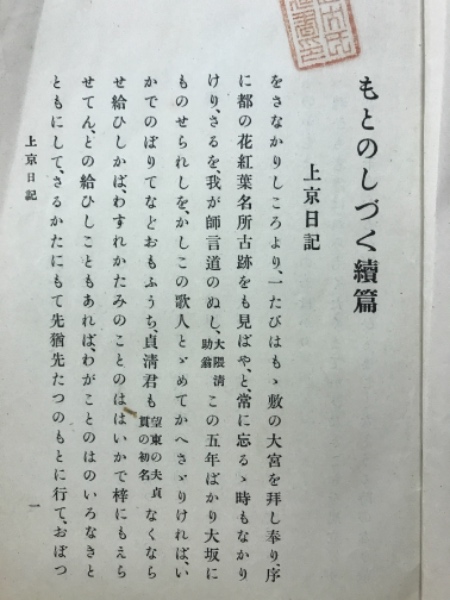 もとのしづく續篇
上京日記
をさなかりしころより、一たびはもゝ敷の大宮を拜し奉り、序
に都の花紅葉名所古跡をも見ばや、と、常に忘るゝ時もなかり
けり、さるを、我が師言道のぬし、大隈清助翁この五年ばかり大坂に
ものせられしを、かしこの歌人とゞめてかへさゞりければ、い
かでのぼりてなどおもふうち、貞清君も望東の夫貞貫の初名なくなら
せ給ひしかば、わすれかたみのことのははいかで梓にもえら
せてん、どの給ひしこともあれば、わがことのはのいろなきと
ともにして、さるかたにもて先猶先たつのもとに行て、おぼつ
上京日記
一